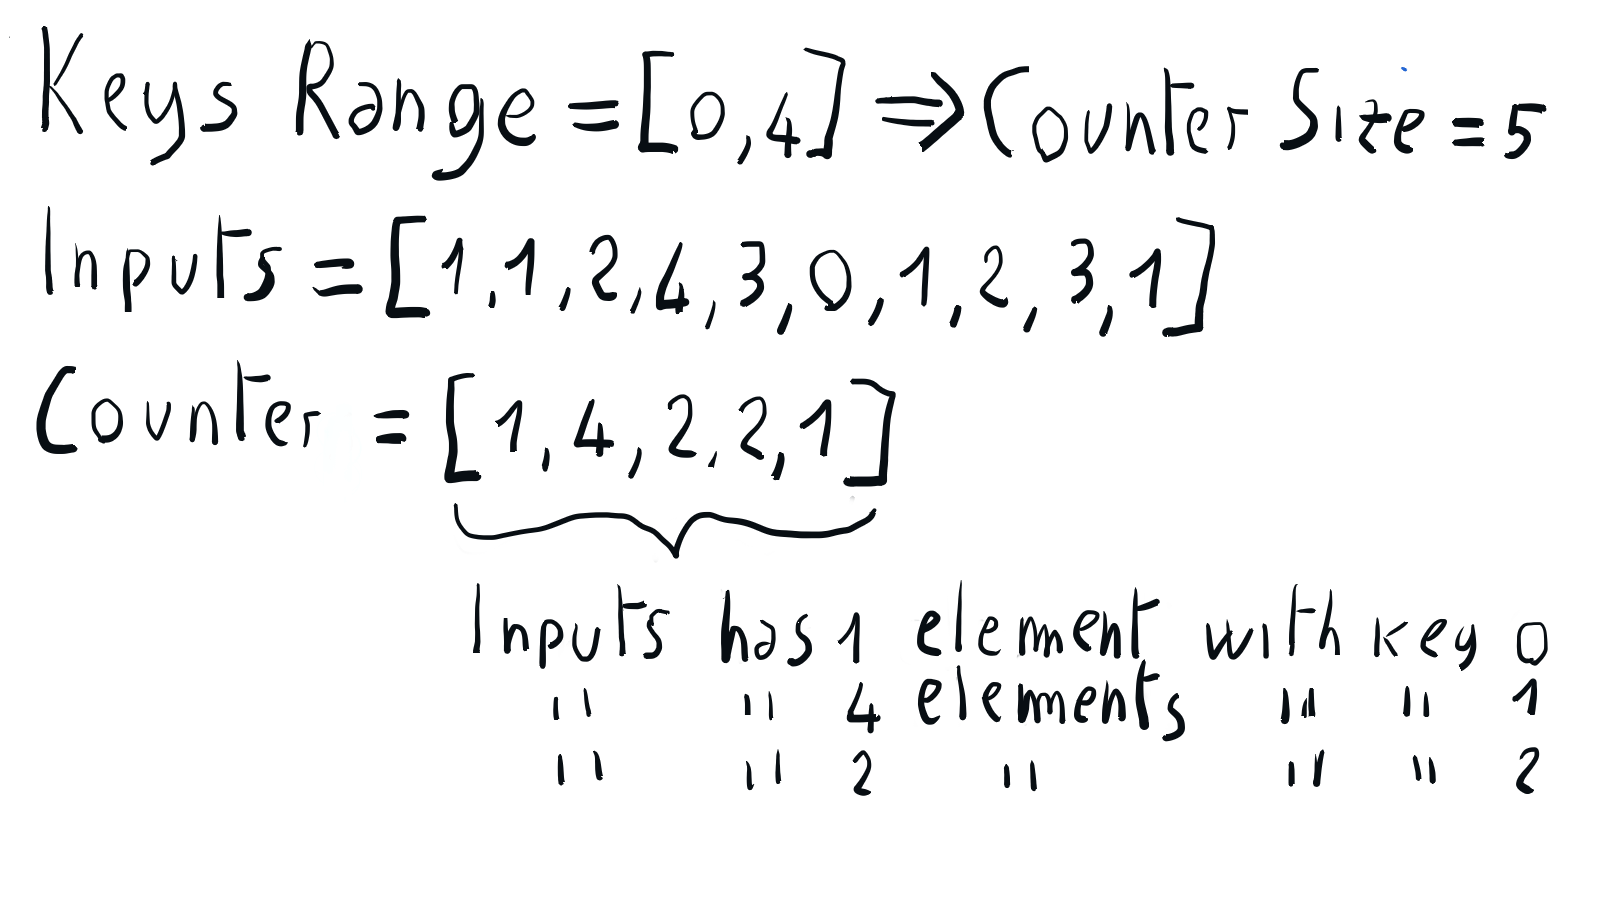 Keys Range = [0,4] ⇒ Counter Size = 5
Inputs = [1,1,2,4,3,0,1,2,3,1]
Counter = [1,4,2,2,1]
Inputs has 1 element with key 0
" " 4 elements " " 1
" " 2 " " " 2